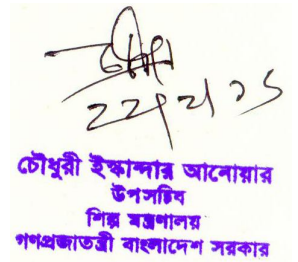 চৌধুরী ইস্কান্দার আনোয়ার
উপসচিব
শিল্প মন্ত্রণালয়
গণপ্রজাতন্ত্রী বাংলাদেশ সরকার